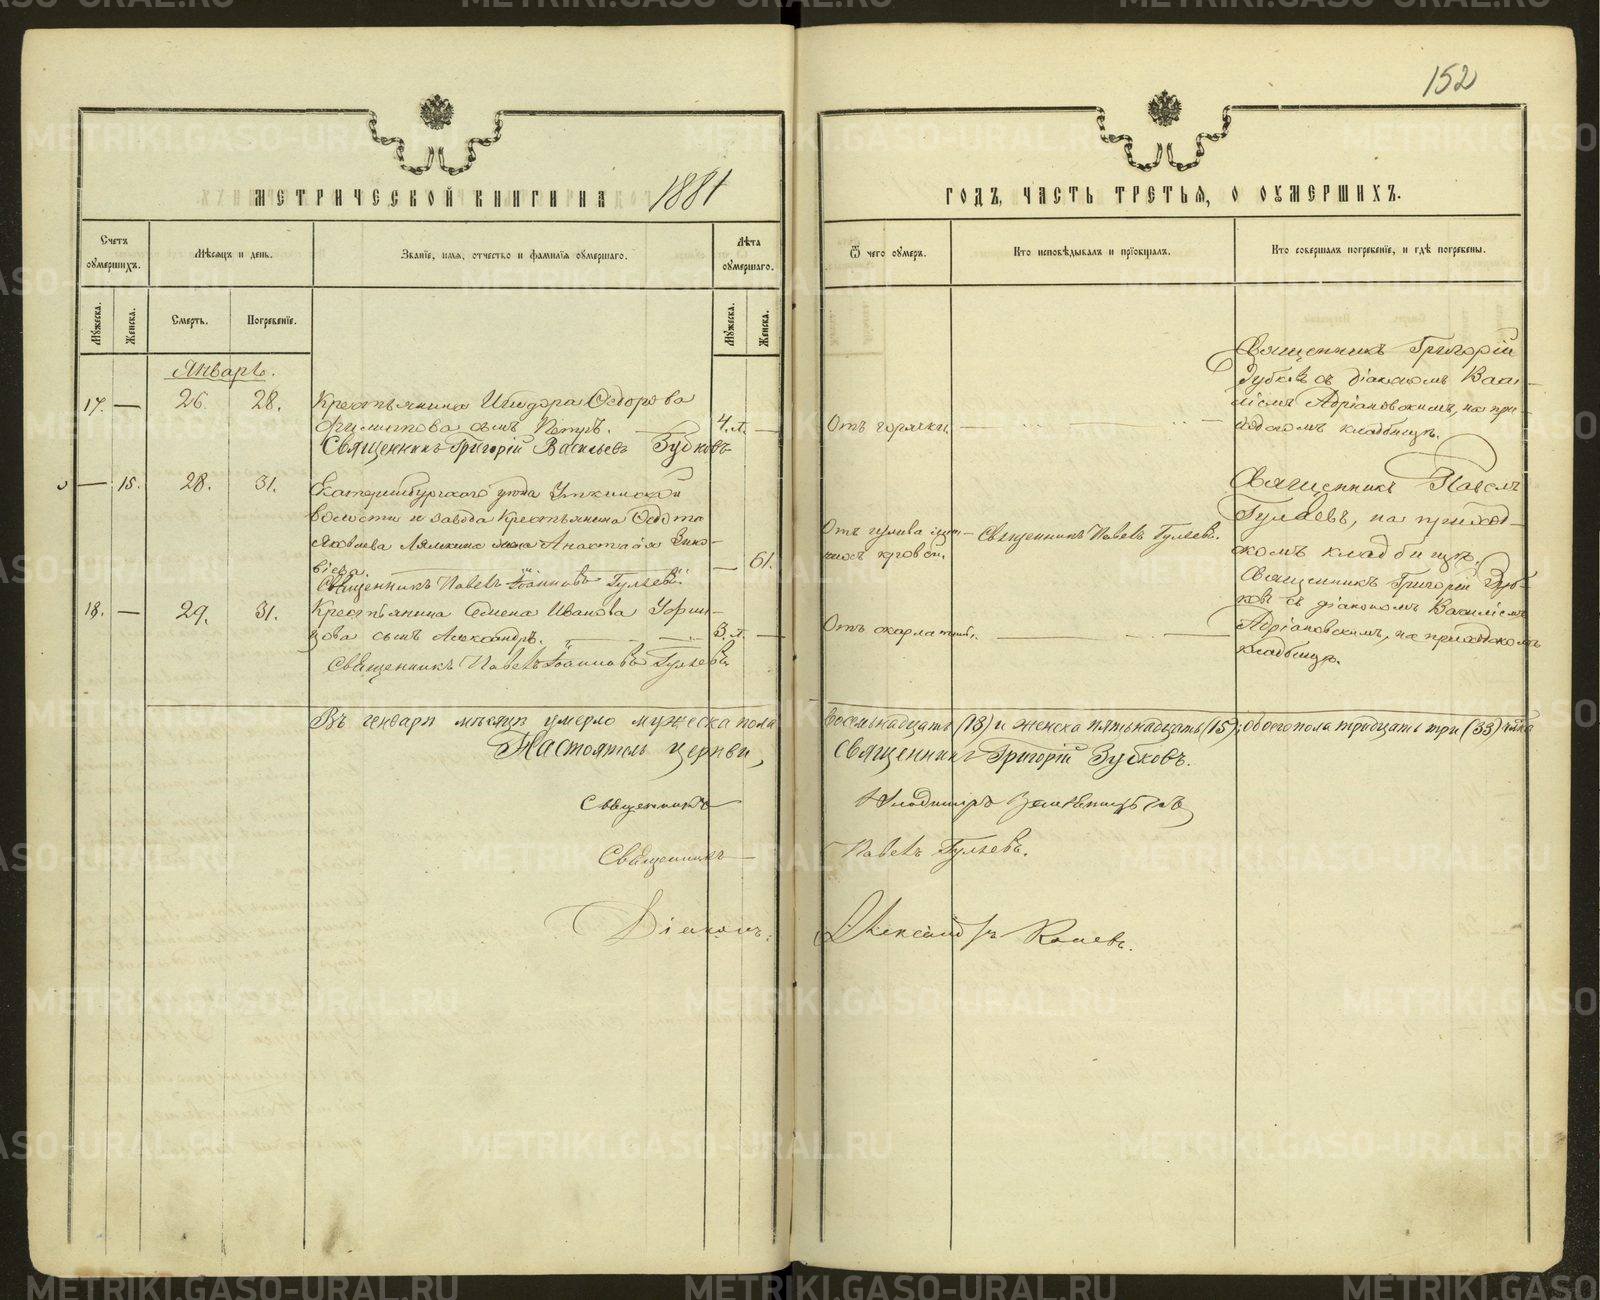 152
МЕТРИЧЕСКОЙ КНИГИ НА 1881
ГОДЪ, ЧАСТЬ ТРЕТЬЯ, О ОУМЕРШИХЪ.
Счетъ оумершихъ.
Мѣсяцъ и день.
Званіе, имя, отчество и фамилія оумершаго.
Лѣта оумершаго.
Ѿ чего оумеръ.
Кто исповѣдывалъ и пріобщалъ.
Кто совершалъ погребеніе, и гдѣ погребены.
Мужеска.
Женска.
Смерть.
Погребеніе.
Мужеска.
Женска.
Январь.
17. — 26. 28.
Крестьянина Исидора Ѳедорова
сынъ Петръ. — 4. л. —
Священникъ Григорій Васильевъ Зубковъ
Отъ горячки.
Священникъ Григорій
Зубковъ съ діакономъ Васи-
ліемъ Адріановскимъ, на при-
ходскомъ кладбищѣ.
— 15. 28. 31.
Екатеринбургскаго уѣзда Уткинской
волости и завода крестьянина Ѳедота
Яковлева жена Анастасія Зино-
віева. — 61.
Священникъ Павелъ Іоанновъ Гуляевъ.
Священникъ Павелъ Гуляевъ.
Священникъ Павелъ
Гуляевъ, на приход-
скомъ кладбищѣ.
18. — 29. 31.
Крестьянина Семена Иванова
сынъ Александръ. — 3. л. —
Священникъ Павелъ Іоанновъ Гуляевъ
Отъ скарлатины.
Священникъ Григорій Зуб-
ковъ съ діакономъ Василіемъ
Адріановскимъ, на приходскомъ
кладбищѣ.
Въ генварѣ мѣсяцѣ умерло мужеска пола восемьнадцать (18) и женска пятьнадцать (15), обоего пола тридцать три (33)
Настоятель церкви, Священникъ Григорій Зубковъ.
Священникъ Владимиръ
Священникъ Павелъ Гуляевъ.
Діаконъ Александръ
METRIKI.GASO-URAL.RU